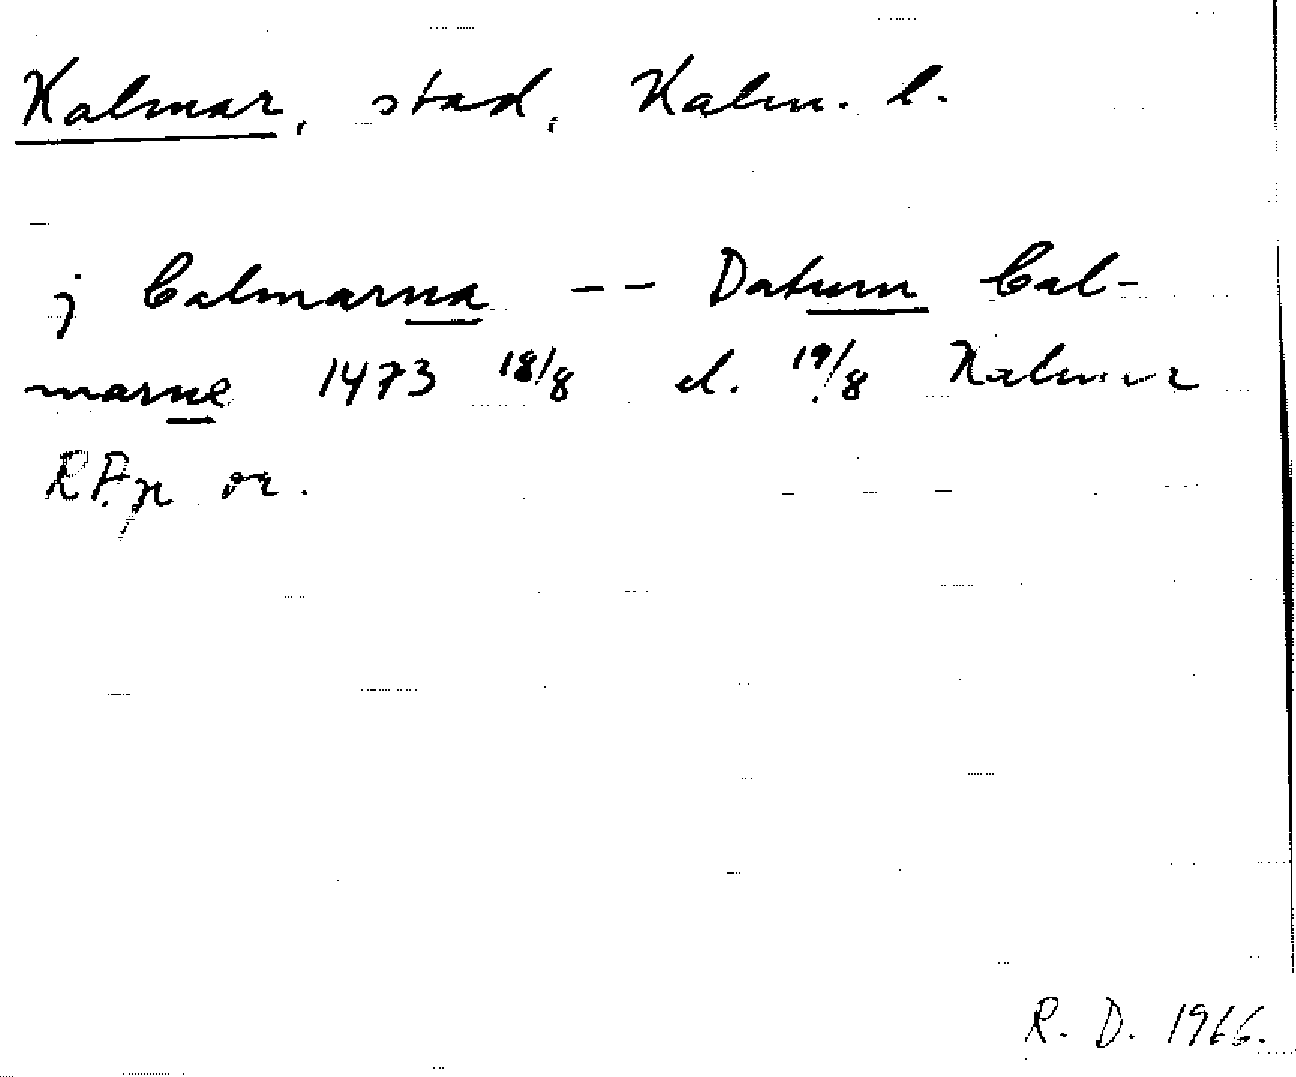 Kalmar, stad, Kalm. l.
j Calmarna -- Datum Cal-
marne 1473 18/8 el. 19/8 Kalmar
RPp or.
R. D. 1966.